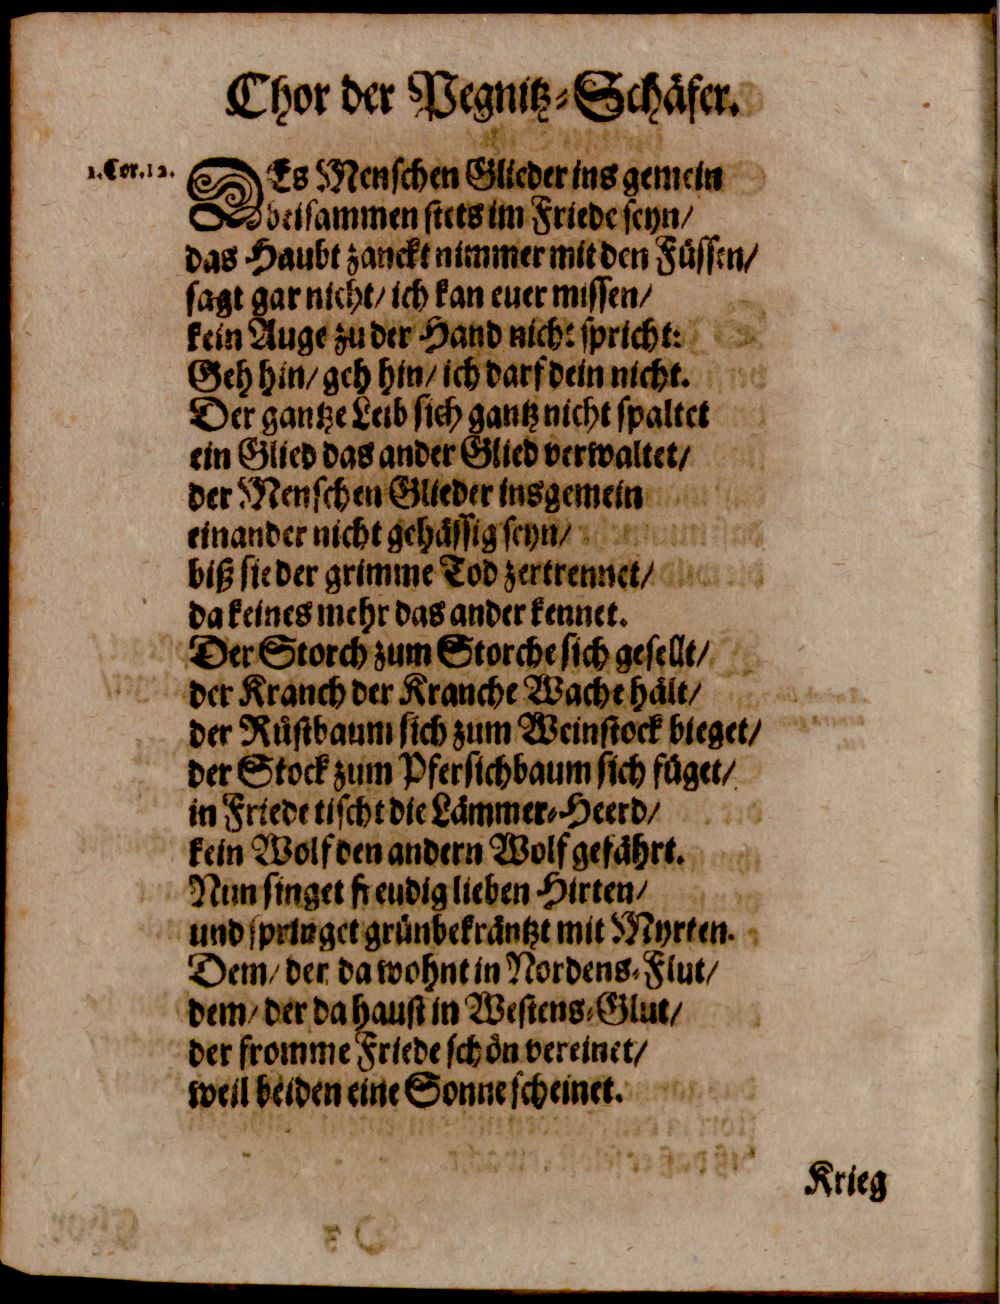 Chor der Pegnitz-Schäfer.
1. Cor. 12.
DEs Menschen Glieder ins gemein
beisammen stets im Friede seyn/
das Haubt zanckt nimmer mit den Füssen/
sagt gar nicht/ ich kan euer missen/
kein Auge zu der Hand nicht spricht:
Geh hin/ geh hin/ ich darf dein nicht.
Der gantze Leib sich gantz nicht spaltet
ein Glied das ander Glied verwaltet/
der Menschen Glieder insgemein
einander nicht gehässig seyn/
biß sie der grimme Tod zertrennet/
da keines mehr das ander kennet.
Der Storch zum Storche sich gesellt/
der Kranch der Kranche Wache hält/
der Rüstbaum sich zum Weinstock bieget/
der Stock zum Pfersichbaum sich füget/
in Friede tischt die Lämmer-Heerd/
kein Wolf den andern Wolf gefährt.
Nun singet freudig lieben Hirten/
und springet grünbekräntzt mit Myrten.
Dem/ der da wohnt in Nordens-Flut/
dem/ der da haust in Westens-Glut/
der fromme Friede schön vereinet/
weil beiden eine Sonne scheinet.
Krieg